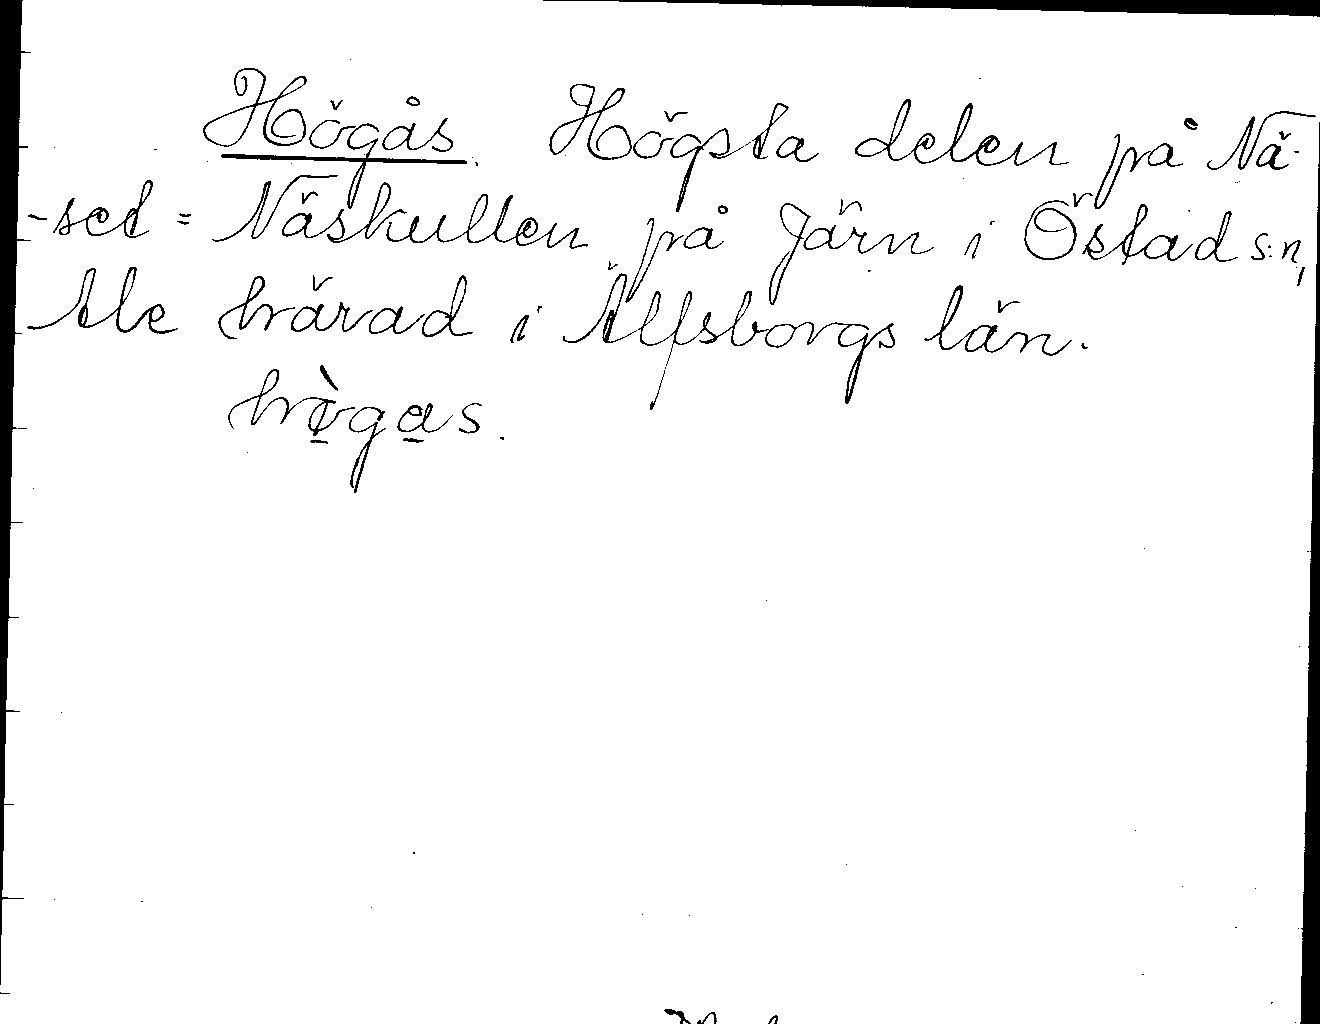 Högås. Högsta delen på Nä-
-set = Näskullen på Järn i Östad s:n,
Ale härad i Älfsborgs län.
hògas.